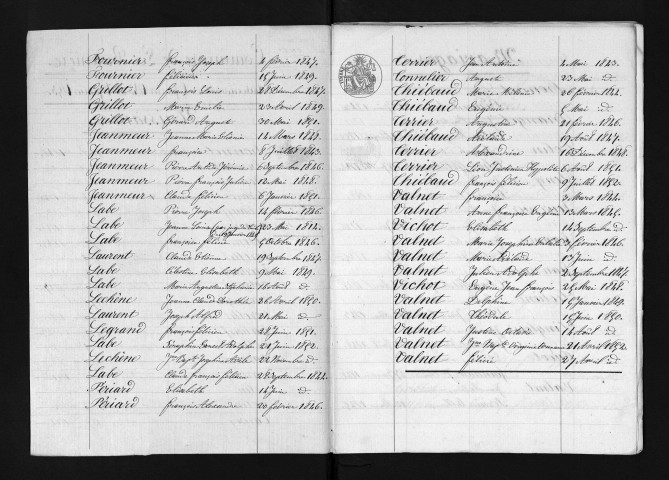 Fournier François Joseph 4 février 1847.
Fournier 15 Juin 1849.
Grillot François Louis 28 Décembre 1847.
Grillot 23 Avril 1849.
Grillot Gérard August 30 Mai 1851.
Jeanmeur Jeanne Marie 14 Mars 1842.
Jeanmeur françoise 8 Juillet 1843.
Jeanmeur Pierre Jérémie 6 Septembre 1846.
Jeanmeur Pierre françois Julien 12 Mai 1848.
Jeanmeur Claude félicien 6 Janvier 1851.
Labe Pierre Joseph 14 février 1846.
Labe Jeanne Louise 23 Mai 1844.
Labe françoise félicie 5 Octobre 1846.
Laurent Claude Etienne 19 Septembre 1847.
Labe Célestine Elisabeth 9 Mai 1849.
Labe Marie Augustine 16 Avril d°
Lechêne Jeanne Claude Dorothée 26 Avril 1850.
Laurent Joseph Alfred 21 Mai d°
Legrand françois félicien 28 Juin 1851.
Labe 21 Juin 1852.
Lechêne 22 Novembre d°
Labe Claude françois félicien 28 Septembre 1844.
Périard Elisabeth 14 Juin d°
Périard françois Alexandre 20 février 1846.
Cerrier Jean Antoine 4 Mai 1843.
Tonnelier August 23 Mai d°
Thiébaud Marie 26 février 1844.
Thiébaud Eugénie 5 Mai d°
Terrier Augustin 21 février 1846.
Thiébaud Adélaïde 19 Avril 1847.
Terrier Alexandrine 16 Décembre 1848.
Terrier Léon Justinien Hyppolite 6 Août 1851.
Thiébaud françois félicien 9 Juillet 1852.
Valnet françoise 3 Mars 1844.
Valnet Anne françoise Eugénie 13 Mars 1845.
Vichot Elisabeth 14 Septembre d°
Valnet Marie Josephine 3 février 1846.
Valnet Marie 13 Juin d°
Valnet Julien Adolphe 2 Septembre 1847.
Vichot Eugène Jean françois 25 Mai 1848.
Valnet Delphine 15 Janvier 1849.
Valnet Théodule 15 Juin 1850.
Valnet Justine 14 Août d°
Valnet Virginie 21 Avril 1852.
Valnet félicie 27 Août d°